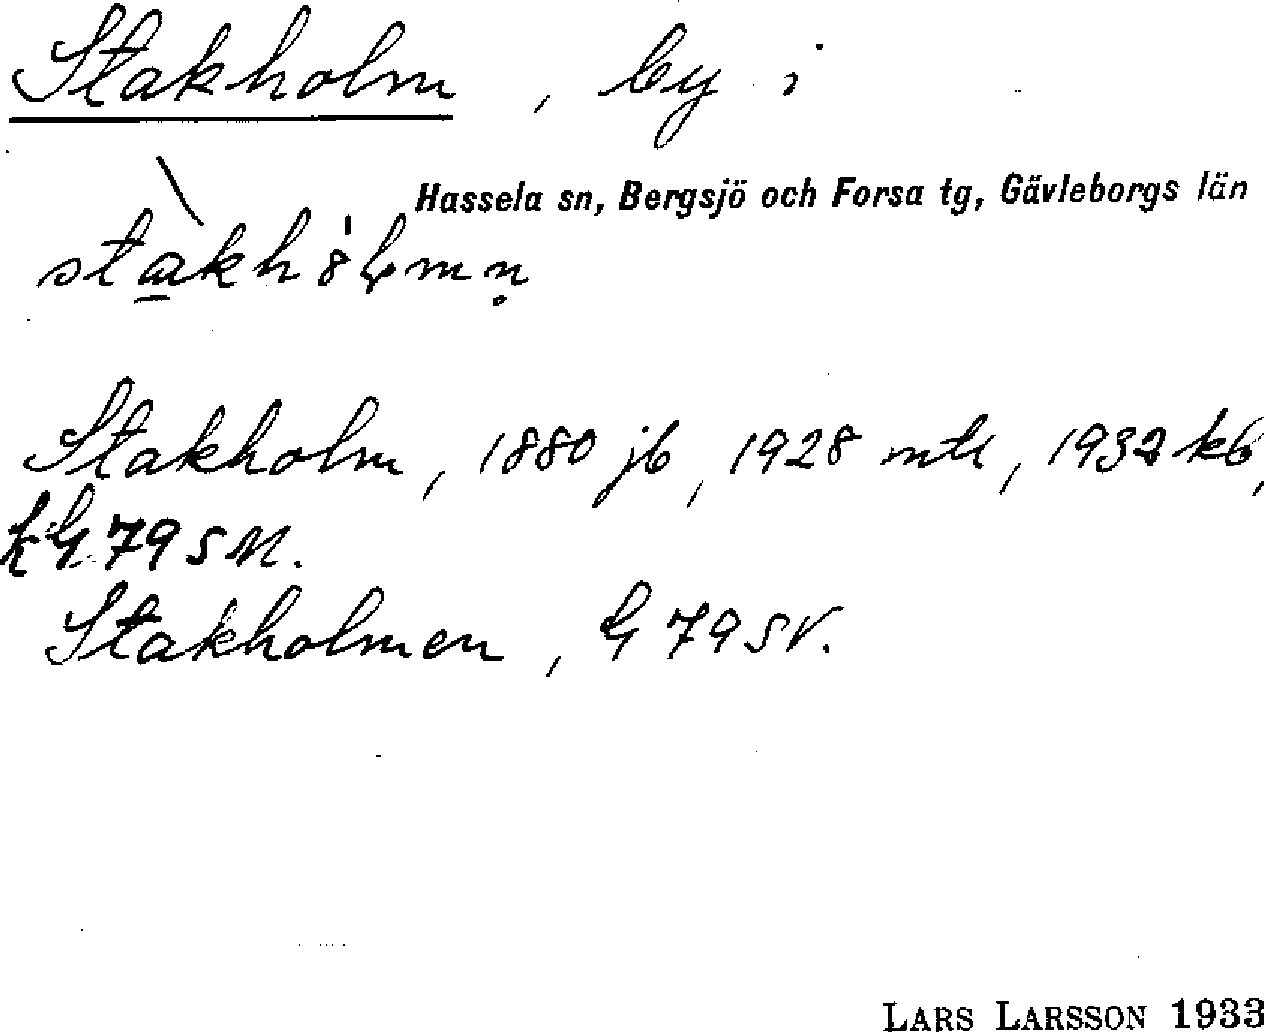 Stakholm, by i
Hassela sn, Bergsjö och Forsa tg, Gävleborgs län
Stakholm, 1880 jb, 1928 mtl, 1932 kb,
79 SM.
Stakholmen, G 79 SV.
LARS LARSSON 1933